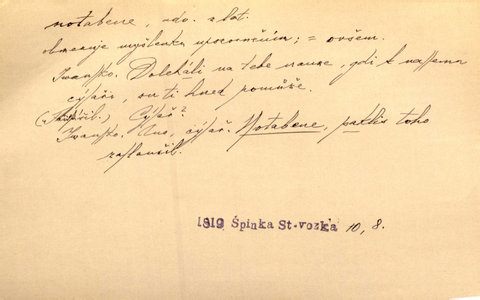 notabene, adv. z lat.
obmezuje myšlenku upozorněním; = ovšem.
Ivanško. Doleháli na tebe nauze, gdi k nassemu
cýsaři, on ti hned pomůže.
( ) Cýsař?
Ivanško. Ano, cýsař. Notabene, paklis toho
zasloužil.
1819 Špinka St-vozka 10, 8.